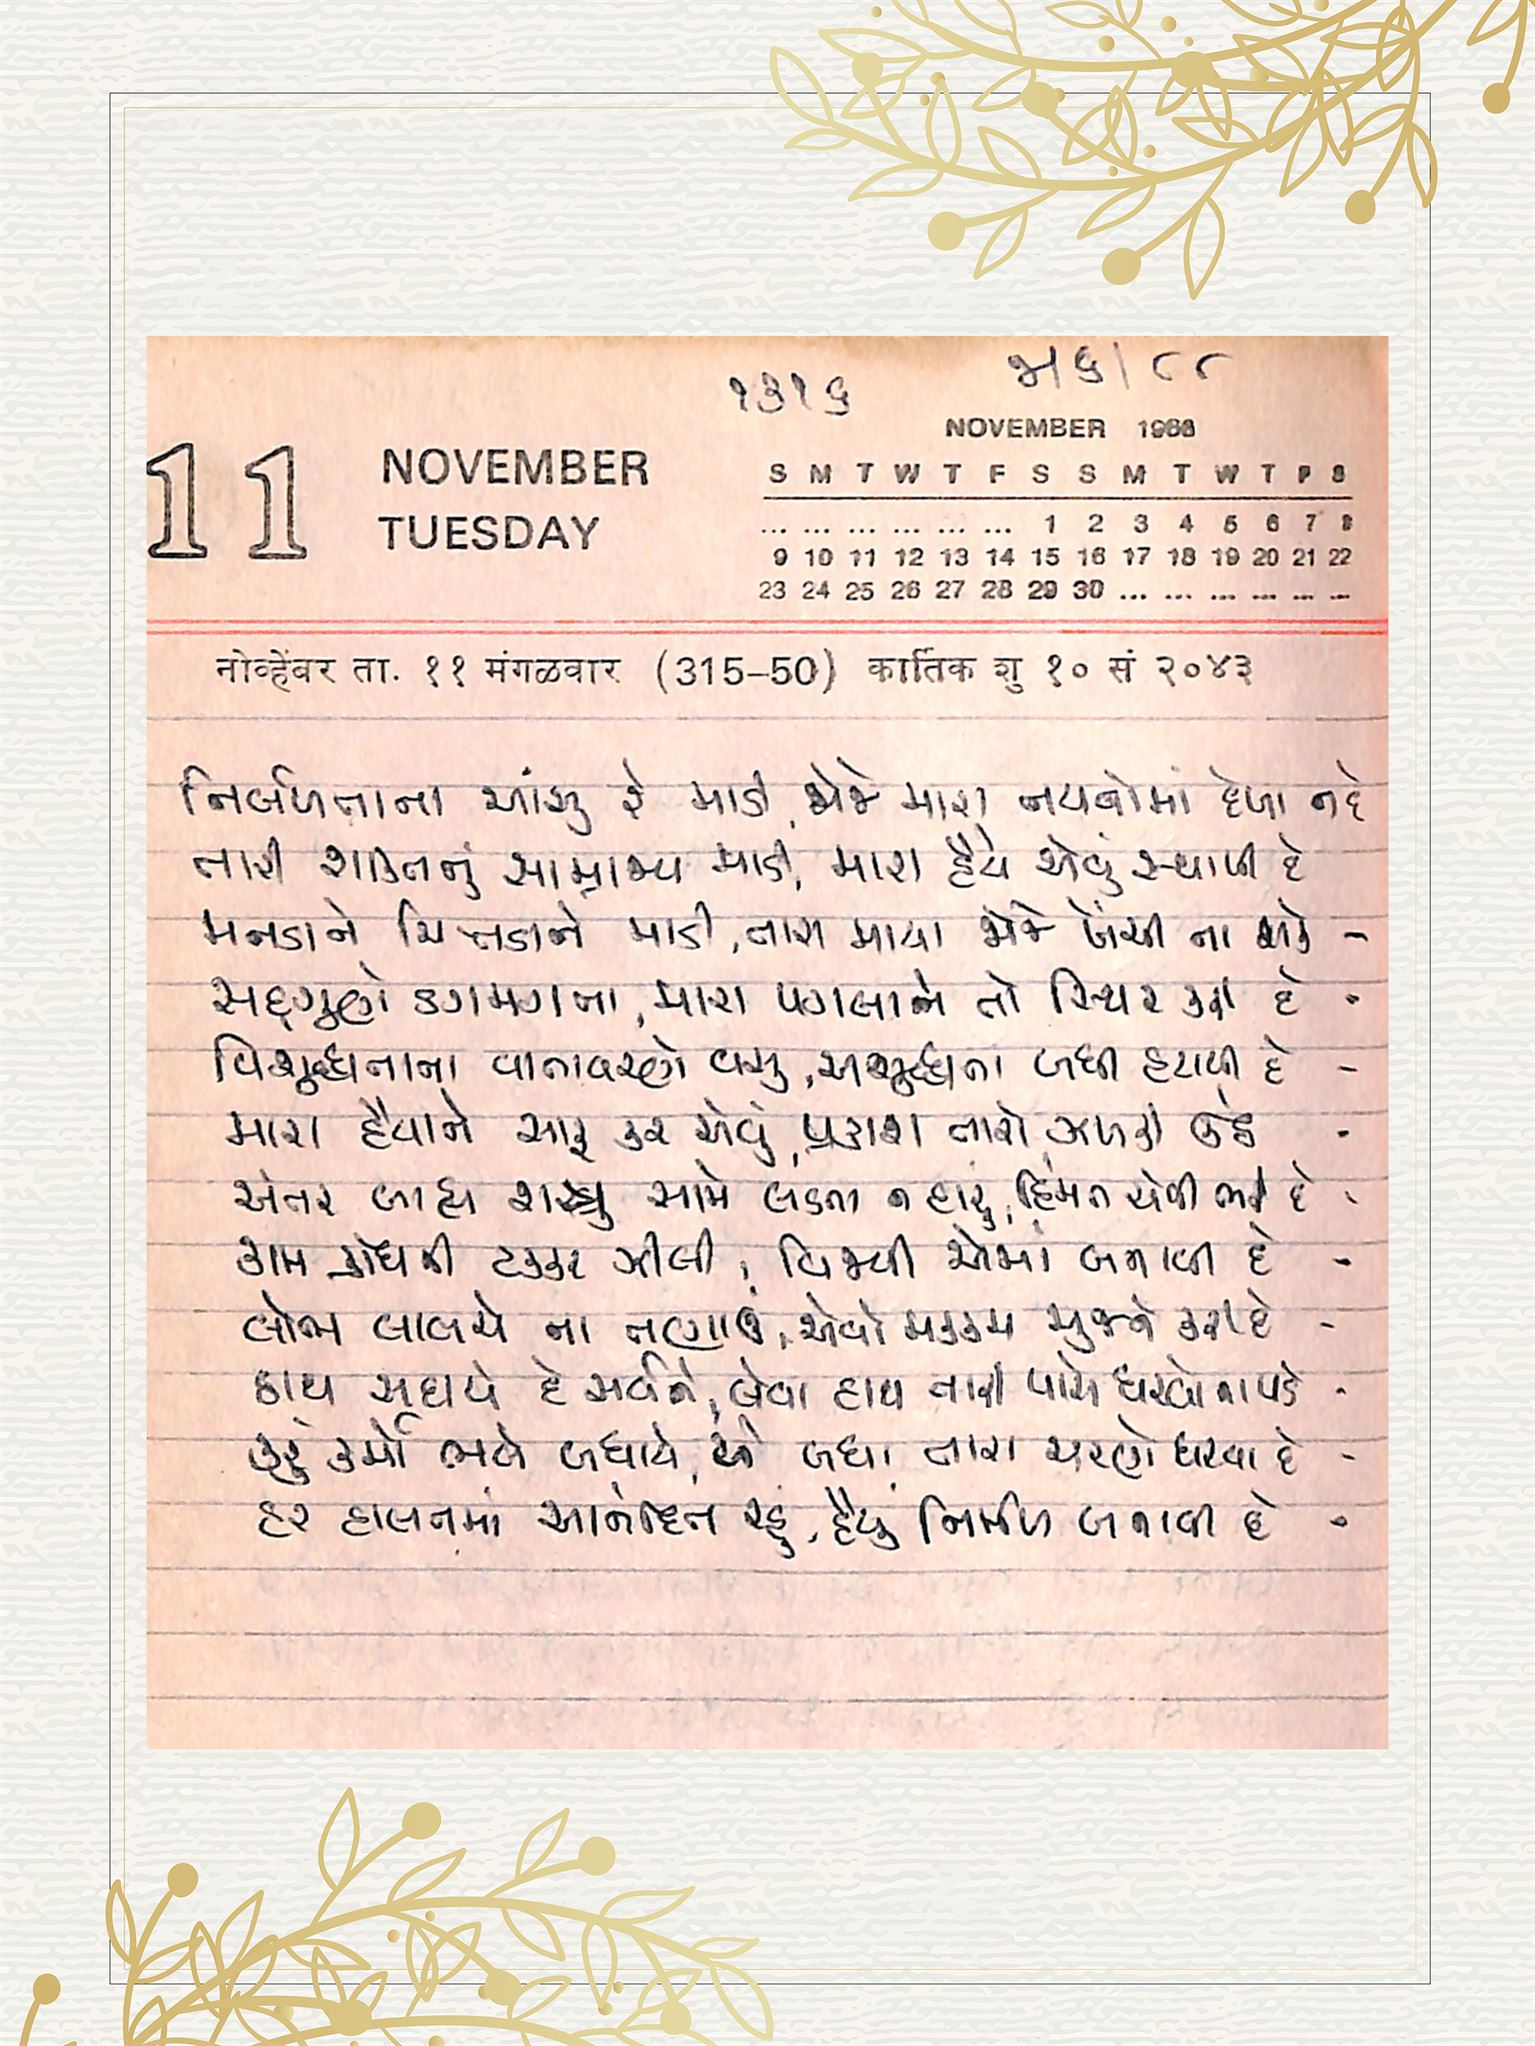 ૧૩૧૬
NOVEMBER 1986
11 NOVEMBER
TUESDAY
S M T W T F S S M T W T F S
... ... ... ... ... ... 1 2 3 4 5 6 7 8
9 10 11 12 13 14 15 16 17 18 19 20 21 22
23 24 25 26 27 28 29 30 ... ... ... ... ... ...
नोव्हेंबर ता. ११ मंगळवार (315-50) कार्तिक शु १० सं २०४३
નિર્બળતાના આંસુ રે માડી, જોજે મારા નયનોમાં દેખા ન દે
તારી શક્તિનું સામ્રાજ્ય માડી, મારા હૈયે એવું સ્થાપી દે
મનડાને ચિત્તડાને માડી, તારી માયા જોજે ખેંચી ના શકે -
સદ્દગુણો ડગમગતા, મારા પગલાને તો સ્થિર કરી દે -
વિશુદ્ધતાના વાતાવરણે વસુ, અશુદ્ધતા બધી હટાવી દે -
મારા હૈયાને સાફ કર એવું, પ્રકાશ તારો ઝળકી ઉઠે -
અંતર બાહ્ય શત્રુ સામે લડતા ન હારું, હિંમત એવી ભરી દે -
કામ ક્રોધની ટક્કર ઝીલી, વિજયી એમાં બનાવી દે -
લોભ લાલચે ના તણાઉં, એવો મક્કમ મુજને કરી દે -
હાથ સદાયે દે સર્વને, લેવા હાથ તારી પાસે ધરવો ના પડે -
કરું કર્મો ભલે બધાયે, એ બધા તારા ચરણે ધરવા દે -
હર હાલતમાં આનંદિત રહું, હૈયું નિર્મળ બનાવી દે -